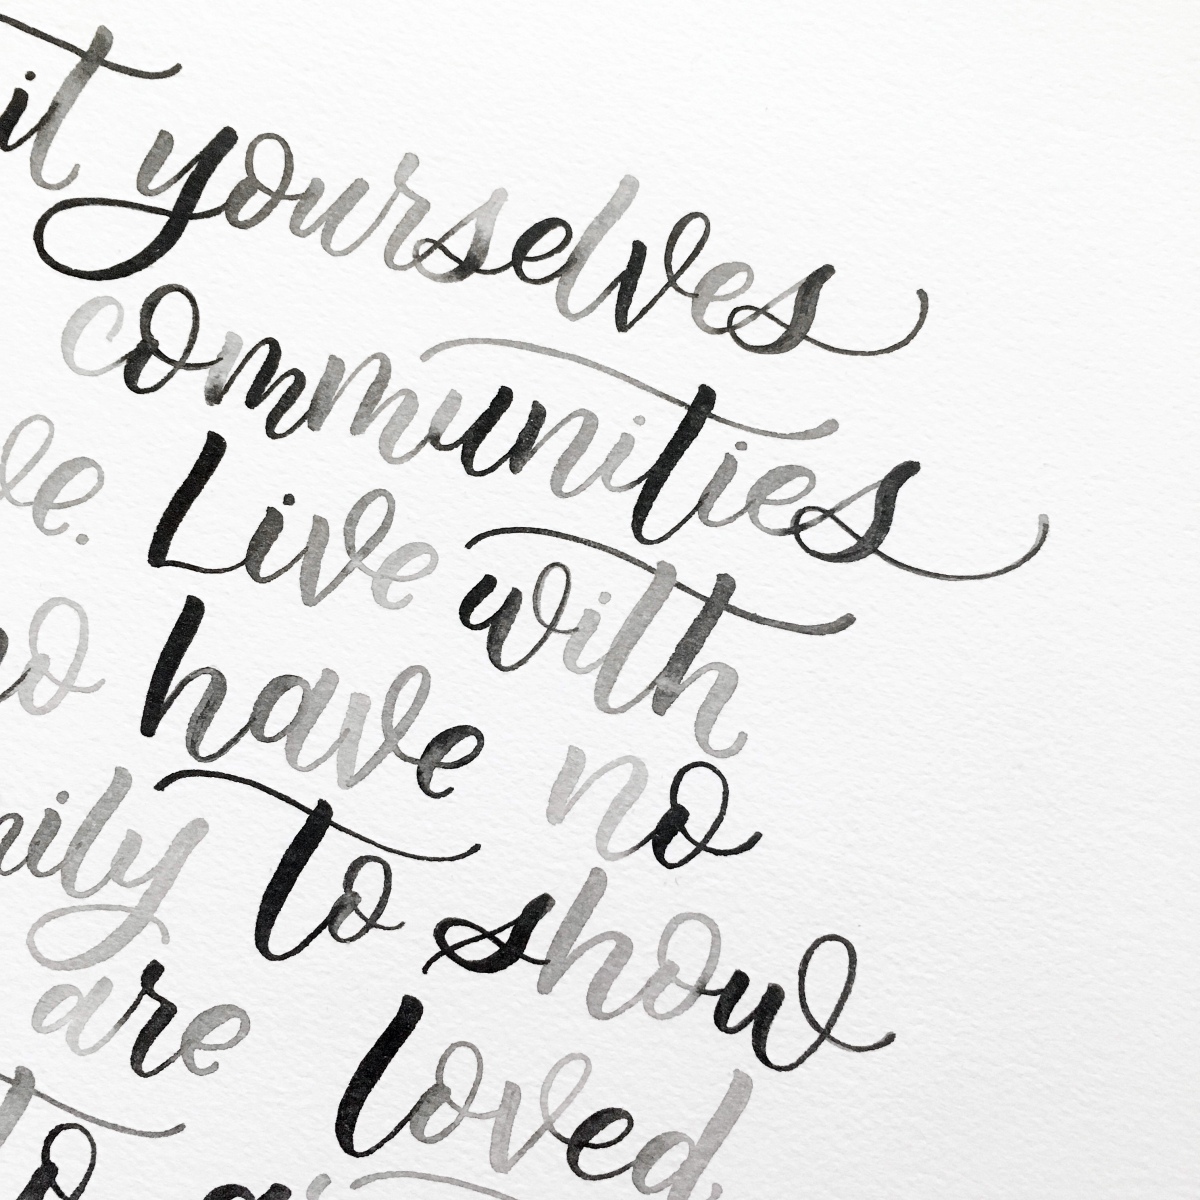 it yourselves
communities
Live with
have no
to show
are loved
to